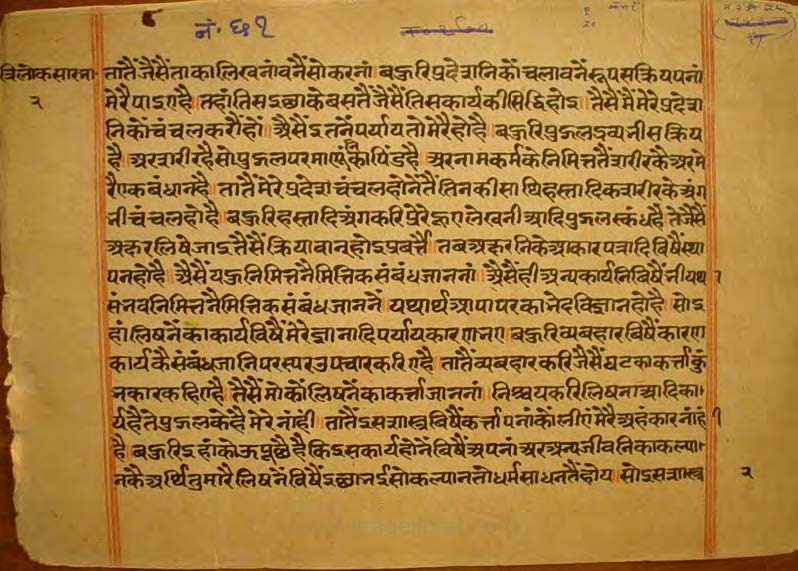 नं. ६१
त्रिलोकसारना
२
तातैं जैसैं ताका लिखनां बनैं सो करनां ॥ बहुरि प्रदेशनिकों चलावनें रूप सक्रियपनां
मेरै पाइए है ॥ तहां तिस इछाके बसतैं जैसैं तिस कार्यकी सिद्धि होइ ॥ तैसैं मैं मेरे प्रदेश
निकों चंचल करौं हों ॥ अैसैं इतनें पर्याय तो मेरे हो है ॥ बहुरि पुद्गल द्रव्यनी सक्रिय
है ॥ अर शरीर है सो पुद्गल परमाणूंनिका पिंड है ॥ अर नामकर्मके निमित्ततैं शरीरकै अर मे
रै एक बंधान है ॥ तातैं मेरे प्रदेश चंचल होनेतैं तिनकी साथि हस्तादिक शरीरके अंग
नी चंचल हो है ॥ बहुरि हस्तादि अंग करि प्रेरे हूए लेखनी आदि पुद्गल स्कंध है ॥ ते जैसैं
अक्षर लिषे जाइ तैसैं क्रियावान् होइ प्रवर्त्तै ॥ तब अक्षरनिके आकार पत्रादि बिषैं स्था
पन हो है ॥ अैसैं यहु निमित्त नैमित्तिक संबंध जाननां ॥ अैसैं ही अन्य कार्यनि बिषैं नी यथा
संनव निमित्त नैमित्तिक संबंध जाननें ॥ यथार्थ आपा परका नेद विज्ञान हो है ॥ सो इ
हां लिषनेंका कार्य बिषैं मेरे ज्ञानादि पर्याय कारण नए ॥ बहुरि व्यवहार बिषैं कारण
कार्यकै संबंध जानि परस्पर उपचार करिए है ॥ तातैं व्यवहार करि जैसैं घटका कर्त्ता कुं
नकार कहिए है ॥ तैसैं मोकों लिषनेंका कर्त्ता जाननां ॥ निश्चय करि लिषना आदि का
र्य है ते पुद्गलके है मेरे नांही ॥ तातैं इस शास्त्र बिषैं कर्त्तापनांकों लीएं मेरै अहंकार नांही
है ॥ बहुरि इहां कोऊ पूछै है कि इस कार्य होनें बिषैं अपनां अर अन्य जीवनिका कल्या
नकै अर्थि तुमारै लिषनें बिषैं इछा नई सो कल्यान तो धर्म साधनतैं होय ॥ सो इस शास्त्र
२